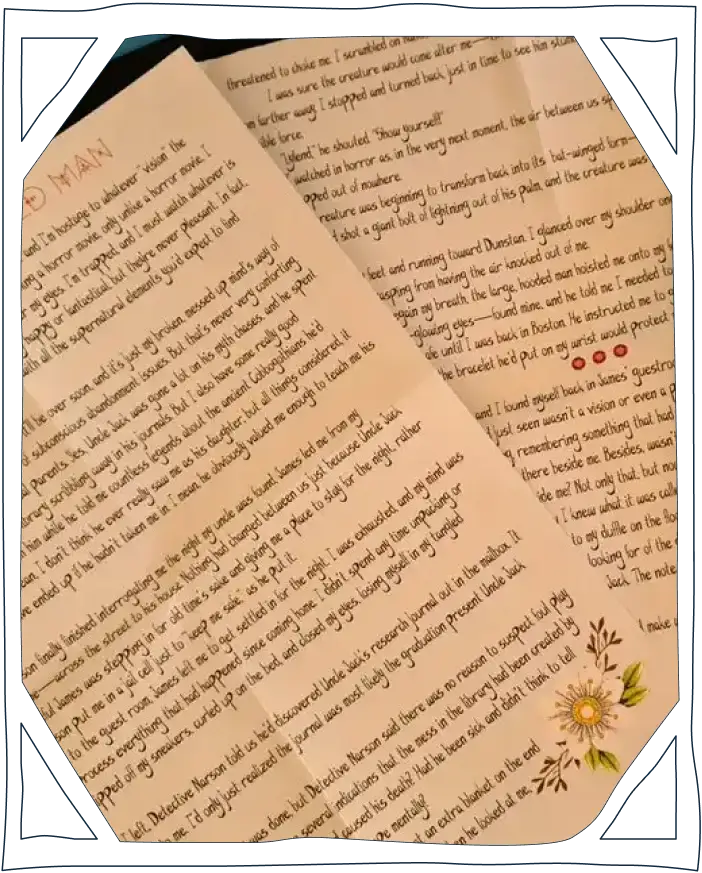 D MAN
and I'm hostage to whatever "vision" the
ng a horror movie, only unlike a horror movie, I
r my eyes. I'm trapped, and I must watch whatever is
happy or fantastical, but they're never pleasant. In fact,
with all the supernatural elements you'd expect to find
'll be over soon, and it's just my broken, messed up mind's way of
of subconscious abandonment issues. But that's never very comforting
l parents. Yes, Uncle Jack was gone a lot on his myth chases, and he spent
brary scribbling away in his journals. But I also have some really good
h him while he told me countless legends about the ancient he'd
ean, I don't think he ever really saw me as his daughter, but all things considered, it
ve ended up if he hadn't taken me in. I mean, he obviously valued me enough to teach me his
son finally finished interrogating me the night my uncle was found, James led me from my
e—across the street to his house. Nothing had changed between us just because Uncle Jack
ful James was stepping in for old time's sake and giving me a place to stay for the night, rather
son put me in a jail cell just to "keep me safe," as he put it.
to the guest room, James left me to get settled in for the night. I was exhausted, and my mind was
rocess everything that had happened since coming home. I didn't spend any time unpacking or
pped off my sneakers, curled up on the bed, and closed my eyes, losing myself in my tangled
left, Detective Narson told us he'd discovered Uncle Jack's research journal out in the mailbox. It
me. I'd only just realized the journal was most likely the graduation present Uncle Jack
was done, but Detective Narson said there was no reason to suspect foul play
several indications that the mess in the library had been created by
caused his death? Had he been sick and didn't think to tell
pe mentally?
ut an extra blanket on the end
n he looked at me,
threatened to choke me. I scrambled on
I was sure the creature would come after me—
n farther away, I stopped and turned back just in time to see him
ible force.
"Iylend," he shouted. "Show yourself!"
watched in horror as, in the very next moment, the air between us
pped out of nowhere.
reature was beginning to transform back into its bat-winged form—
d shot a giant bolt of lightning out of his palm, and the creature was
feet and running toward Dunstan. I glanced over my shoulder
asping from having the air knocked out of me.
egain my breath, the large, hooded man hoisted me onto my
glowing eyes—found mine, and he told me I needed to
afe until I was back in Boston. He instructed me to
he bracelet he'd put on my wrist would protect
and I found myself back in James' guestroo
just seen wasn't a vision or even a
remembering something that had
there beside me. Besides, wasn'
ide me? Not only that, but
I knew what it was
to my duffle on the
looking for of the
Jack. The note
I make